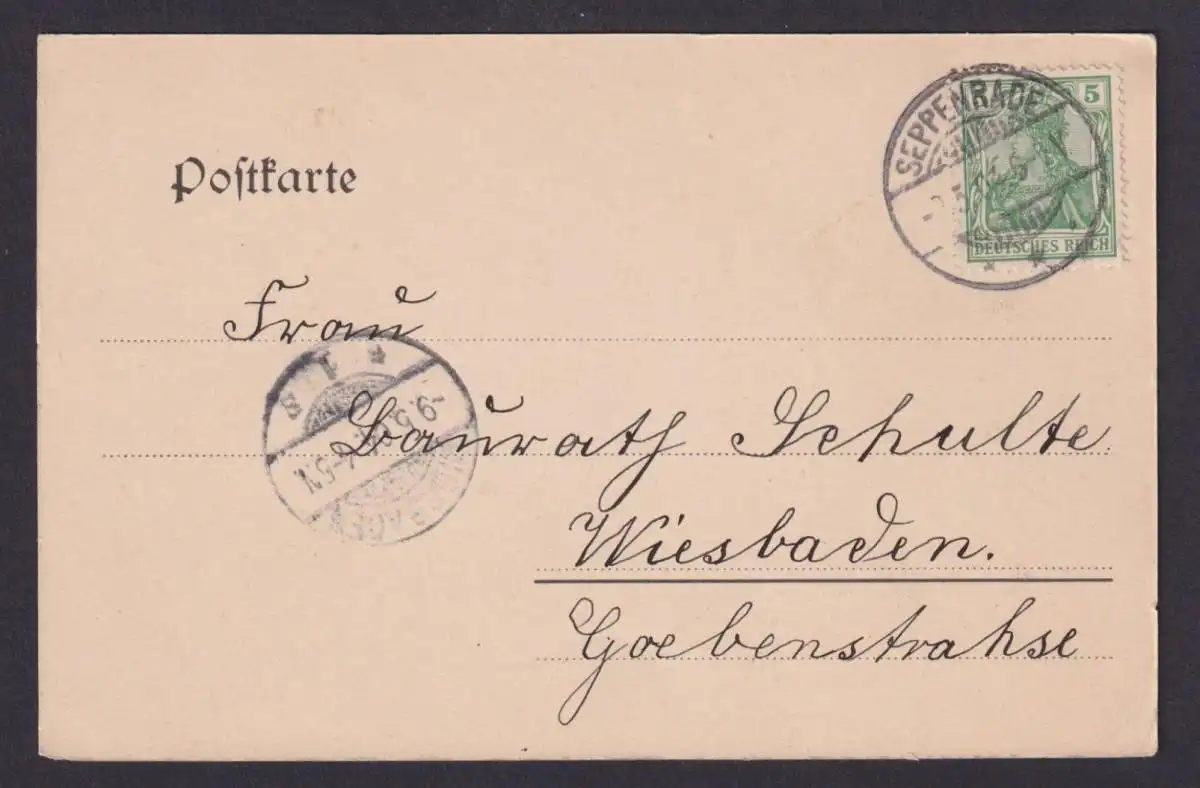 Postkarte
SEPPENRADE
5
DEUTSCHES REICH
Frau
Baurath Schulte
Wiesbaden.
Goebenstrahse
-9.5.
4-5N.